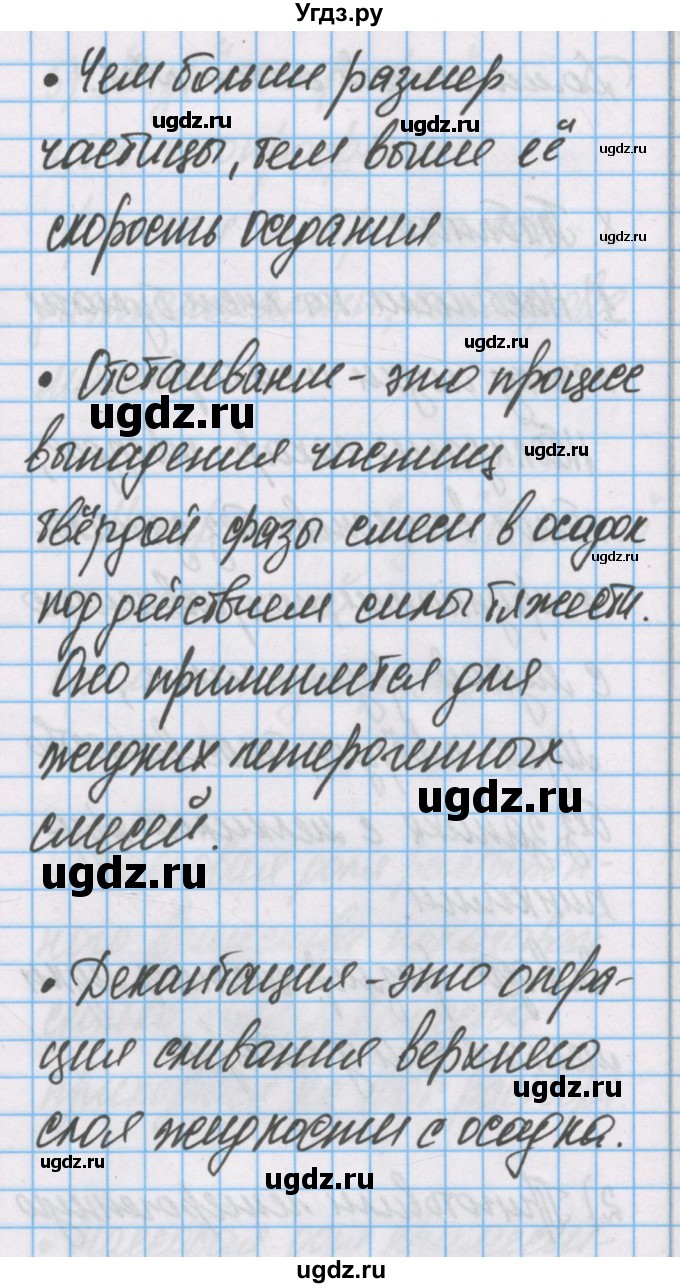 Угдз.ру
• Чем больше размер
ugdz.ru ugdz.ru
частицы, тем выше её ugdz.ru
скорость оседания
ugdz.ru
ugdz.ru
• Отстаивание - это процесс
ugdz.ru
выпадения частиц ugdz.ru
твёрдой фазы смеси в осадок
ugdz.ru
под действием силы тяжести.
Оно применяется для
жидких гетерогенных
ugdz.ru
смесей.
ugdz.ru
• Декантация - это опера-
ция сливания верхнего
ugdz.ru
слоя жидкости с осадка.
ugdz.ru ugdz.ru
ugdz.ru